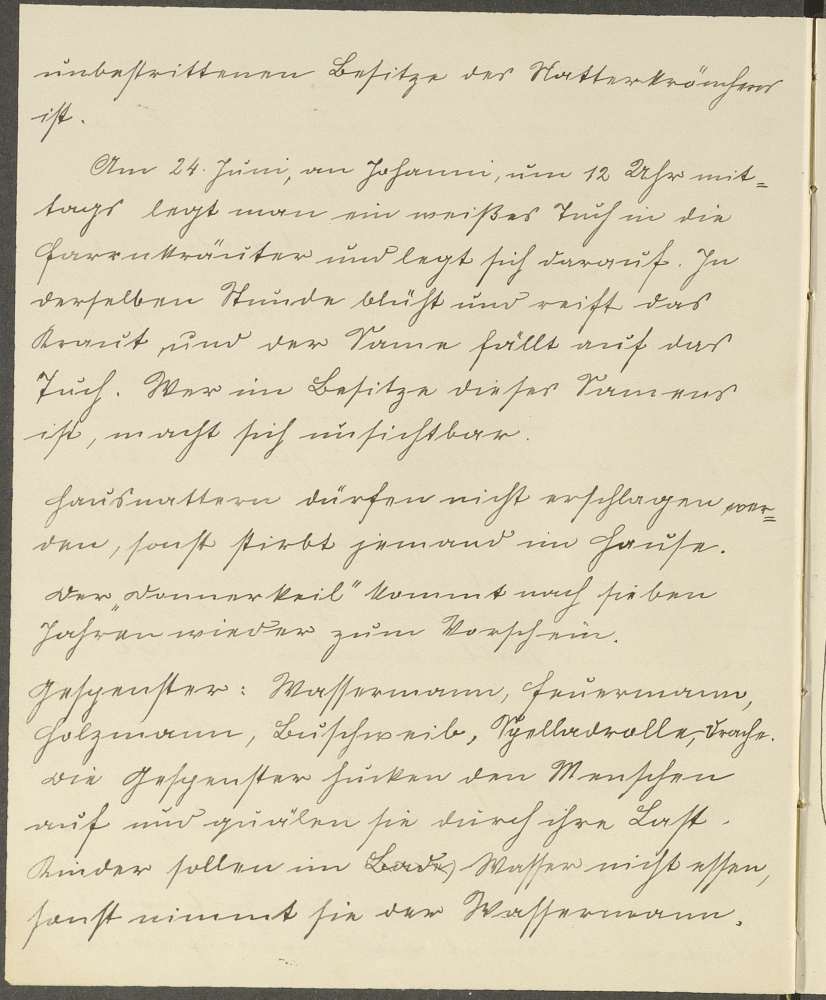 unbestrittenen Besitze des Natterkrönchens
ist.
Am 24. Juni, an Johanni, um 12 Uhr mit=
tags legt man ein weißes Tuch in die
Farrnkräuter und legt sich darauf. In
derselben Stunde blüht und reift das
Kraut, und der Same fällt auf das
Tuch. Wer im Besitze dieses Samens
ist, macht sich unsichtbar.
Hausnattern dürfen nicht erschlagen wer=
den, sonst stirbt jemand im Hause.
Der „Donnerkeil“ kommt nach sieben
Jahren wieder zum Vorschein.
Gespenster: Wassermann, Feuermann,
Holzmann, Buschweib, Spelladrolle, Drache.
Die Gespenster hucken den Menschen
auf und quälen sie durch ihre Last.
Kinder sollen im Wasser nicht essen,
sonst nimmt sie der Wassermann.